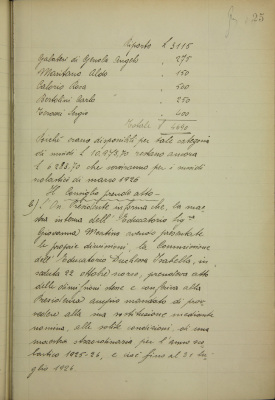 25
Riporto £ 3115
Galateri di Genola Angelo " 275
Montano Aldo " 150
Valerio Rosa " 500
Bertolini Carlo " 250
Sergio " 400
Totale £ 4690
Poiché erano disponibili per tale categoria
di sussidi L 10,973,70 restano ancora
L 6283.70 che serviranno per i sussidi
relativi di marzo 1926
Il Consiglio prende atto -
6/ Il Presidente informa che, la mae-
stra interna dell'Educatorio Sig.na
Giovanna avendo presentate
le proprie dimissioni, la Commissione
dell'Educatorio Duchessa Isabella, in
seduta 22 ottobre scorso, prendeva atto
delle dimissioni stesse e conferiva alla
Presidenza ampio mandato di prov-
vedere alla sua sostituzione mediante
nomina, alle solite condizioni, di una
maestra straordinaria per l'anno sco-
lastico 1925-26, e cioè fino al 31 lu-
glio 1926